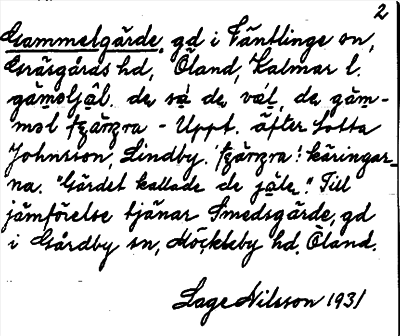 2
Gammelgärde, gd i Ventlinge sn,
Gräsgårds hd, Öland, Kalmar l.
gäməljäl. de sa de väl, de gäm-
məl - Uppt. äfter Lotta
Johnsson, Lindby. käringar-
na. "Gärdet kallade de jäle". Till
jämförelse tjänar Smedsgärde, gd
i Gårdby sn, Möckleby hd. Öland.
Lage Nilsson 1931